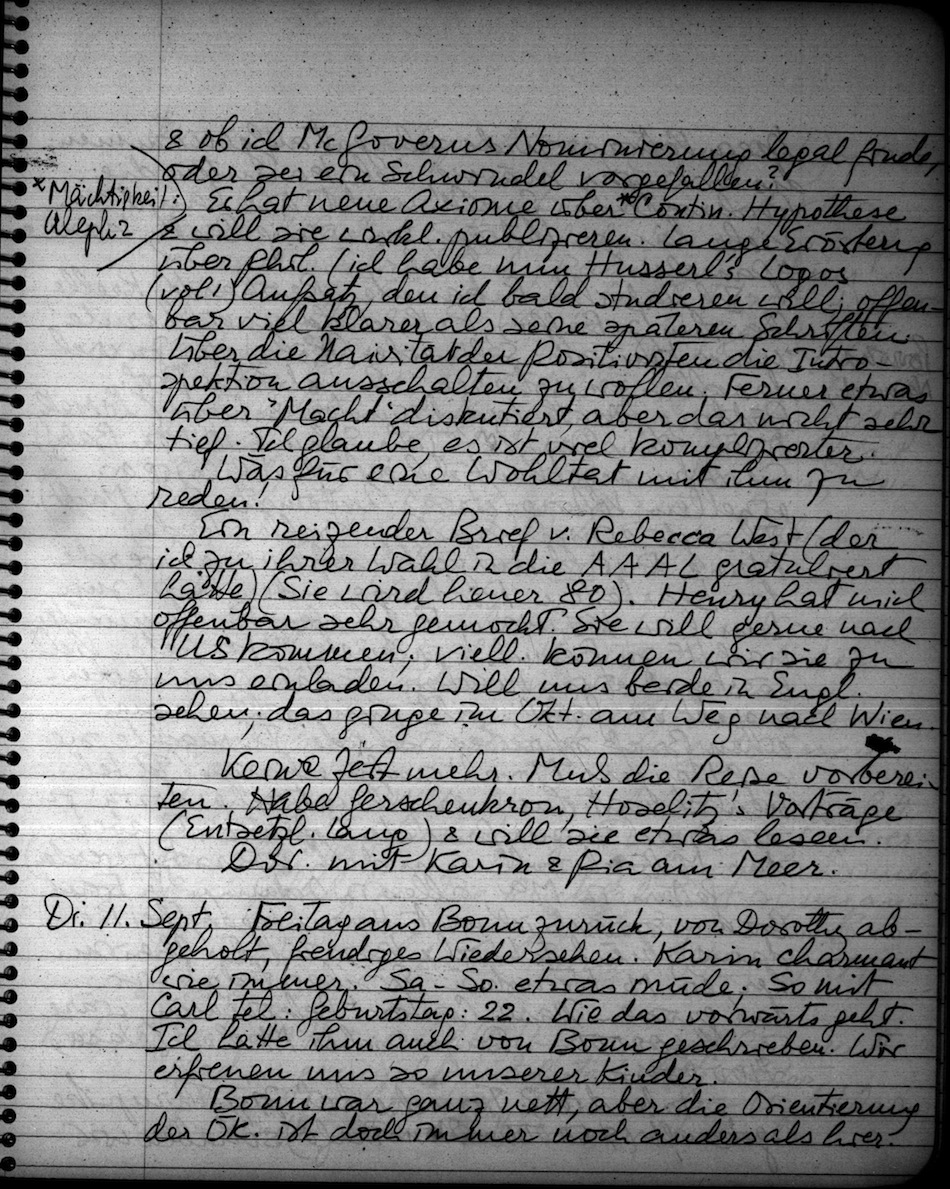 & ob ich McGoverns Nominierung legal finde,
oder sei ein Schwindel vorgefallen?
*Mächtigkeit:
Aleph 2
Er hat neue Axiome über *Contin. Hypothese
& will sie wirkl. publizieren. Lange Erörterung
über Phil. (ich habe nun Husserl's Logos
(vol 1) Aufsatz, den ich bald studieren will; offen-
bar viel klarer als seine späteren Schriften.
Über die Naivität der Positivisten die Intro-
spektion ausschalten zu wollen. Ferner etwas
über 'Macht' diskutiert, aber das nicht sehr
tief. Ich glaube, es ist viel komplizierter.
Was für eine Wohltat mit ihm zu
reden!
Ein reizender Brief v. Rebecca West (der
ich zu ihrer Wahl in die AAAL gratuliert
hatte) (Sie wird heuer 80). Henry hat mich
offenbar sehr gemocht. Sie will gerne nach
US kommen; viell. können wir sie zu
uns einladen. Will uns beide in Engl.
sehen; das ginge im Okt. am Weg nach Wien.
Keine Zeit mehr. Muß die Reise vorberei-
ten. Habe Gerschenkron, Hoselitz's Vorträge
(Entsetzl. lang) & will sie etwas lesen.
Dor. mit Karin & Pia am Meer.
Di. 11. Sept. Freitag aus Bonn zurück, von Dorothy ab-
geholt, freudiges Wiedersehen. Karin charmant
wie immer. Sa-So. etwas müde. So mit
Carl tel: Geburtstag: 22. Wie das vorwärts geht.
Ich hatte ihm auch von Bonn geschrieben. Wir
erfreuen uns so unserer Kinder.
Bonn war ganz nett, aber die Orientierung
der Ök. ist doch immer noch anders als hier.